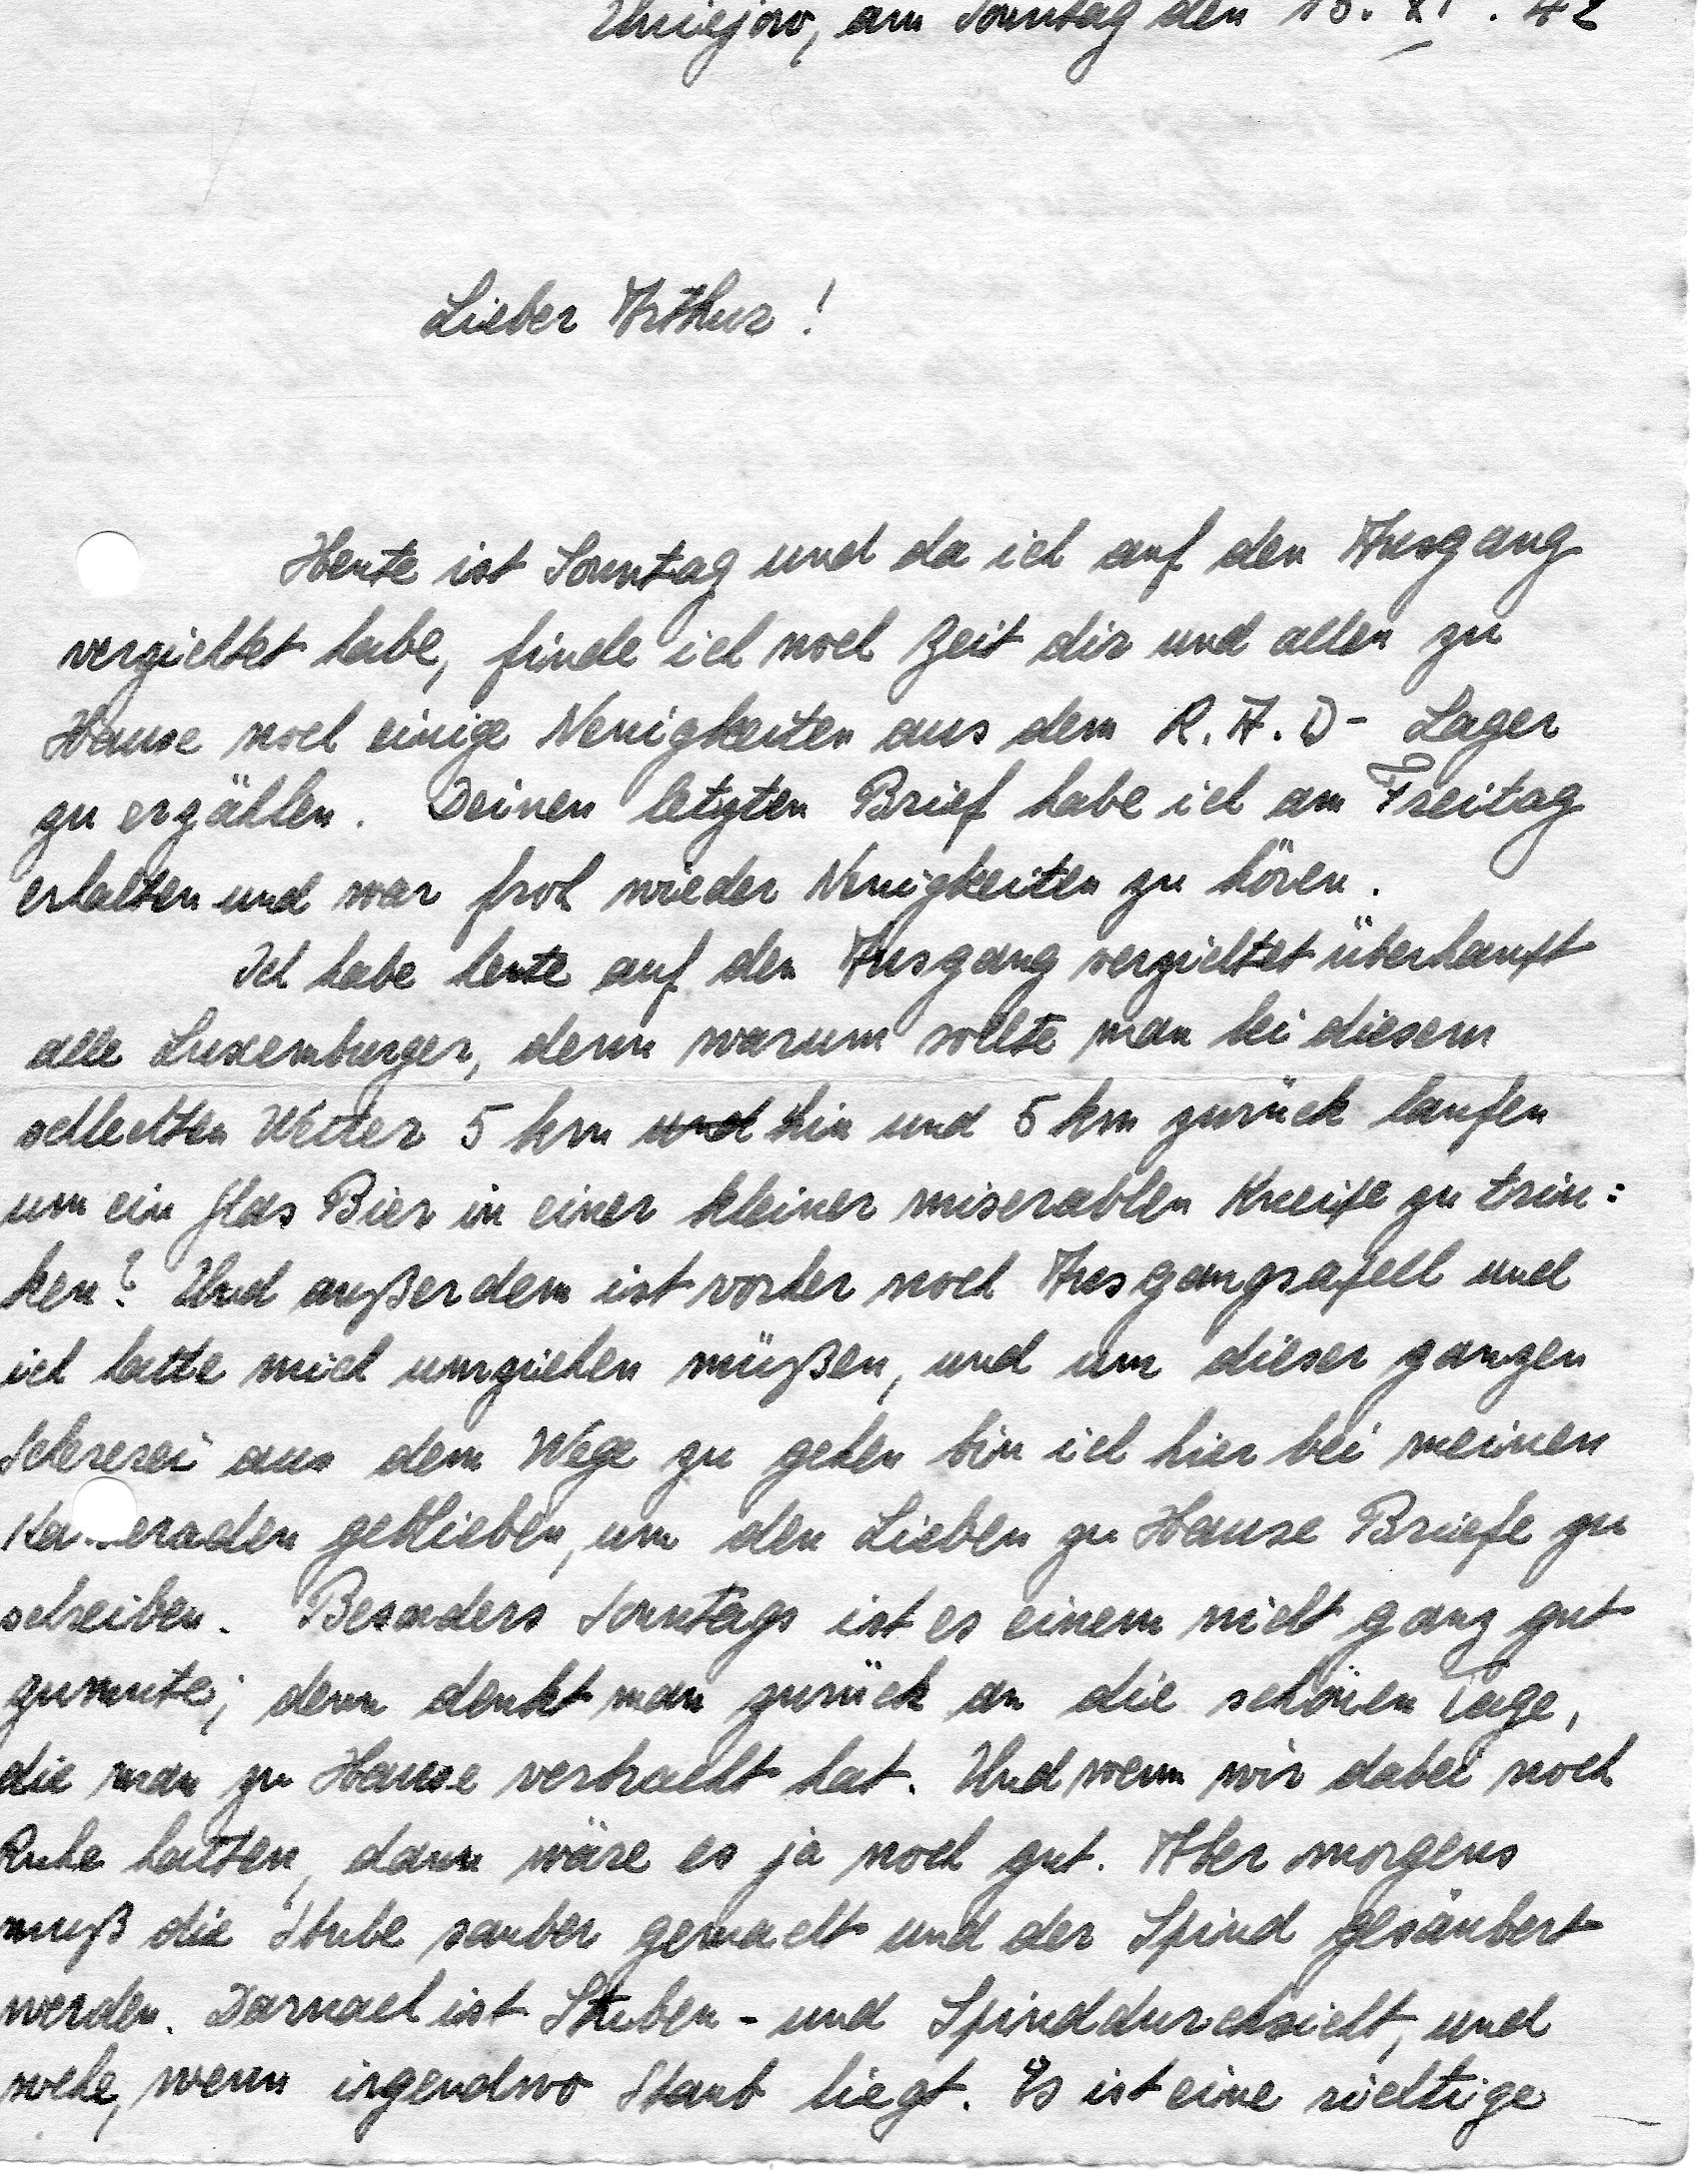 Uniejow, am Sonntag den 15. XI. 42
Lieber Arthur!
Heute ist Sonntag und da ich auf den Ausgang
verzichtet habe, finde ich noch Zeit dir und allen zu
Hause noch einige Neuigkeiten aus dem R.A.D- Lager
zu erzählen. Deinen letzten Brief habe ich am Freitag
erhalten und war froh wieder Neuigkeiten zu hören.
Ich habe heute auf den Ausgang verzichtet überhaupt
alle Luxemburger, denn warum sollte man bei diesem
schlechten Wetter 5 km und hin und 5 km zurück laufen
um ein Glas Bier in einer kleiner miserablen Kneipe zu trin:
ken? Und außerdem ist vorher noch Ausgangsapell und
ich hatte mich umziehen müßen, und um dieser ganzen
Schererei aus dem Wege zu gehen bin ich hier bei meinen
Kameraden geblieben, um den Lieben zu Hause Briefe zu
schreiben. Besonders Sonntags ist es einem nicht ganz gut
zumute; denn denkt man zurück an die schönen Tage,
die man zu Hause verbracht hat. Und wenn wir dabei noch
Ruhe hätten, dann wäre es ja noch gut. Aber morgens
muß die Stube sauber gemacht und der Spind gesäubert
werden. Darnach ist Stuben- und Spinddurchsicht, und
wehe, wenn irgendwo Staub liegt. Es ist eine richtige